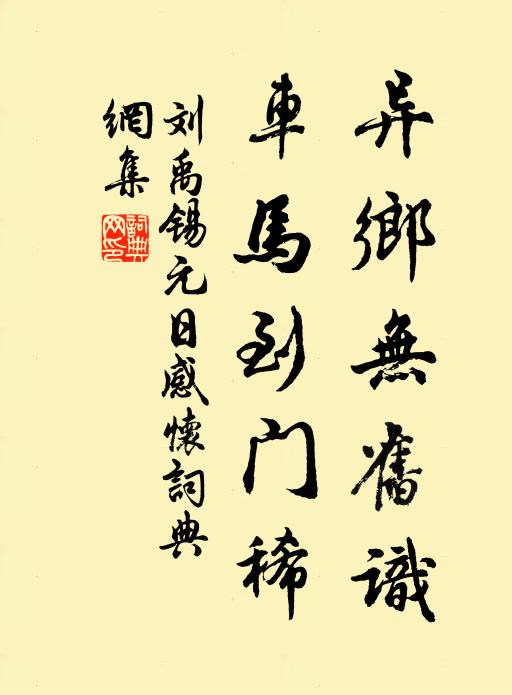 异鄉無舊識
車馬到门稀
刘禹锡元日感懷詞典
網集
詞典網印